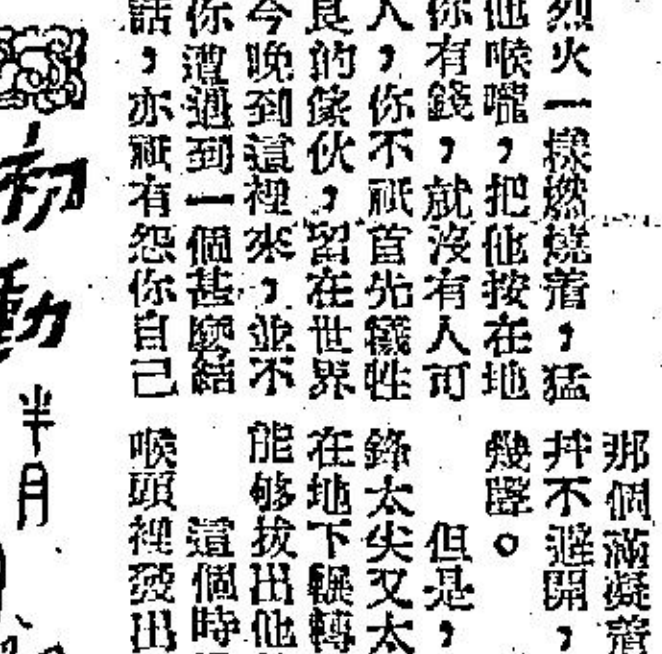 烈火一樣燃燒着,猛
他喉嚨,把他按在地
你有錢,就沒有人可
人,你不祇首先犧牲
良的傢伙,留在世界
今晚到這裡來,並不
你遭遇到一個甚麼結
話,亦祇有怨你自己
那個滿凝着
并不避開,
幾聲。
但是,
鋒太尖又太
在地下輾轉
能够拔出他
這個時
喉頭裡發出
初動
半月